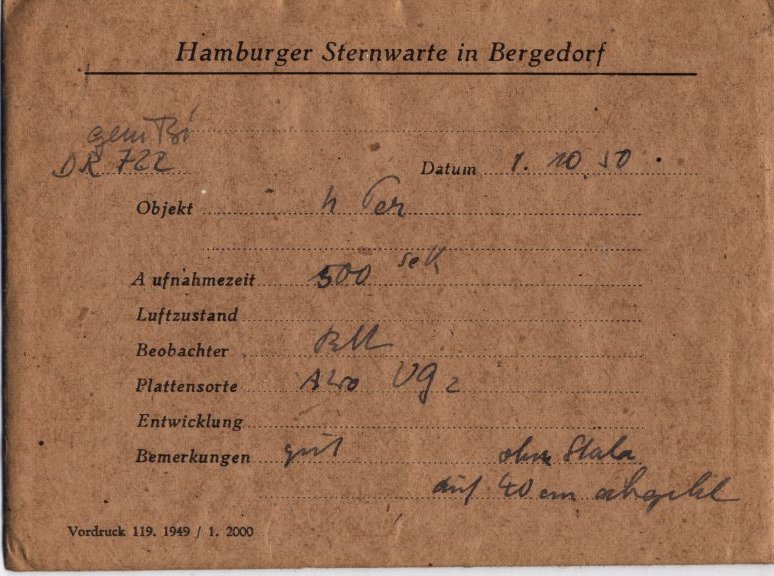 Hamburger Sternwarte in Bergedorf
DR 722
Datum 1. 10 50
Objekt h Per
Aufnahmezeit 500 sek
Luftzustand
Beobachter
Plattensorte UG 2
Entwicklung
Bemerkungen gut ohne Skala
auf 40 cm
Vordruck 119. 1949 / 1. 2000